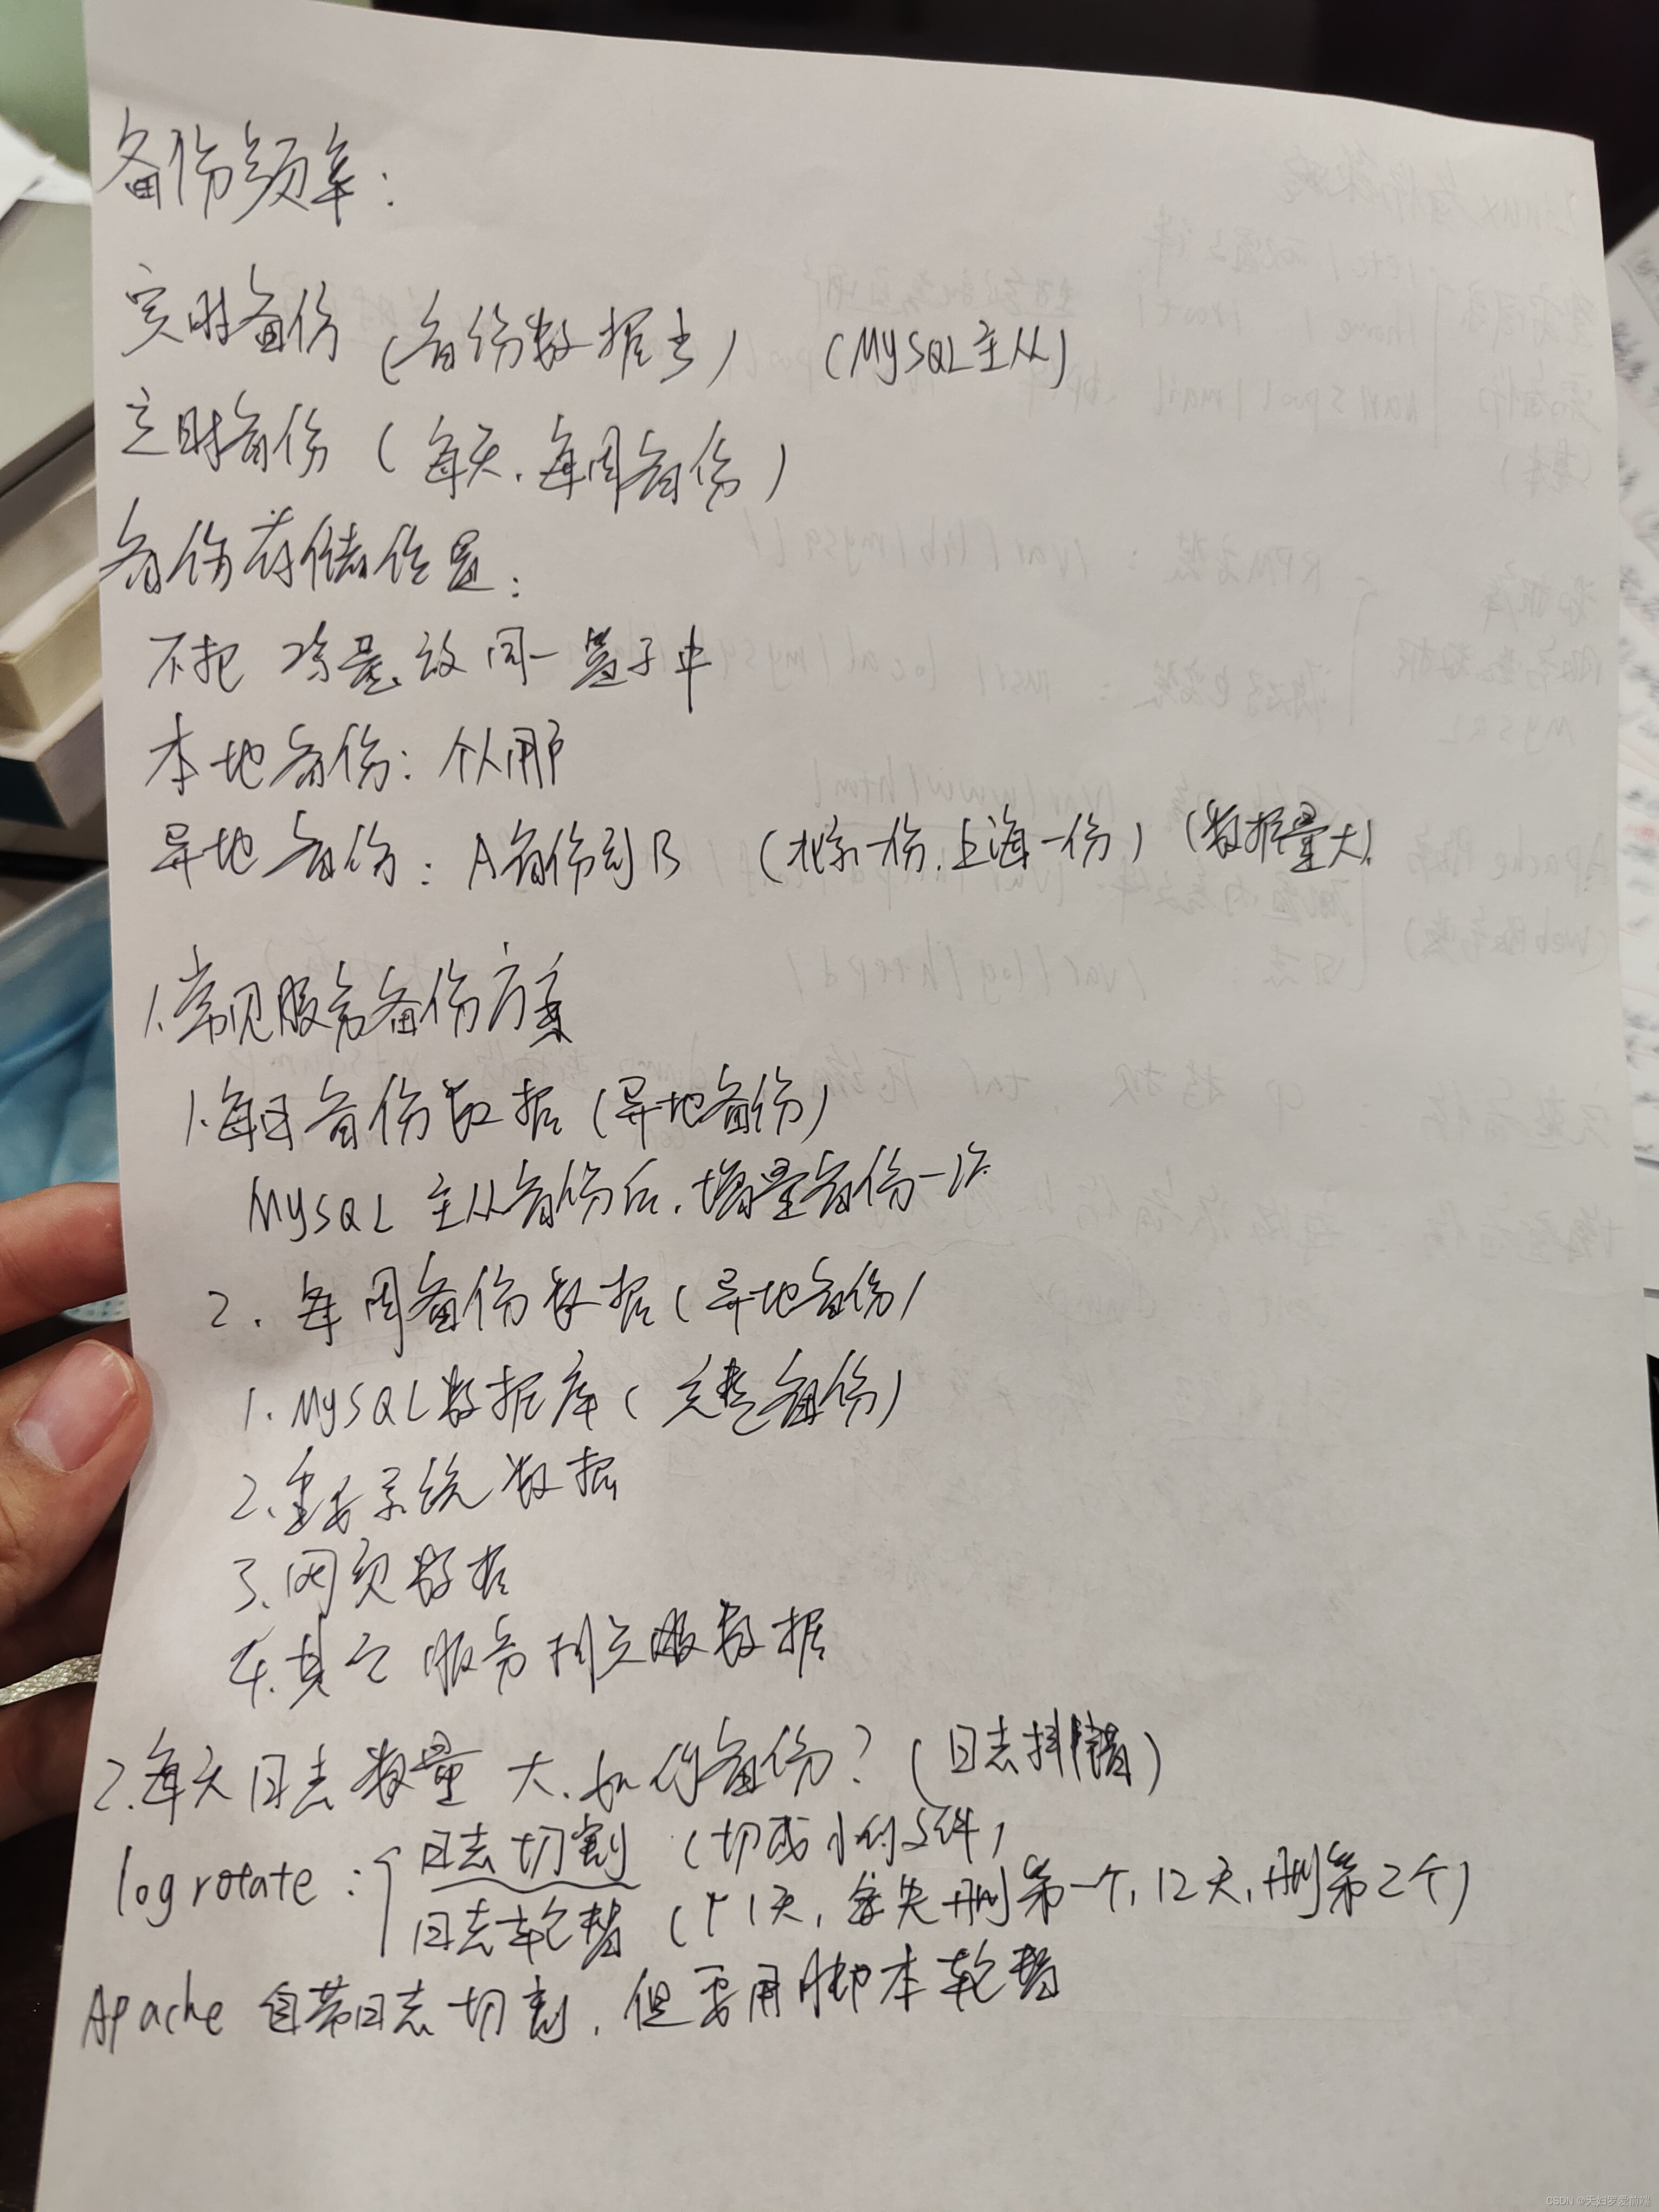 备份频率：
实时备份（备份数据）（MySQL主从）
定时备份（每天、每周备份）
备份存储位置：
不把鸡蛋放同一篮子中
本地备份：个人用户
异地备份：A备份到B（北京一份，上海一份）（数据量大）
1.常见服务备份方案
1.每日备份数据（异地备份）
MySQL 主从备份后，增量备份一次
2. 每周备份数据（异地备份）
1. MySQL数据库（完整备份）
2.重要系统数据
3.网页数据
4.其它服务数据
2.每天日志数量大，如何备份？（日志排错）
logrotate：日志切割（切成小的文件）
日志轮替（11天，删第一个，12天，删第2个）
Apache 自带日志切割，但要用脚本轮替
CSDN